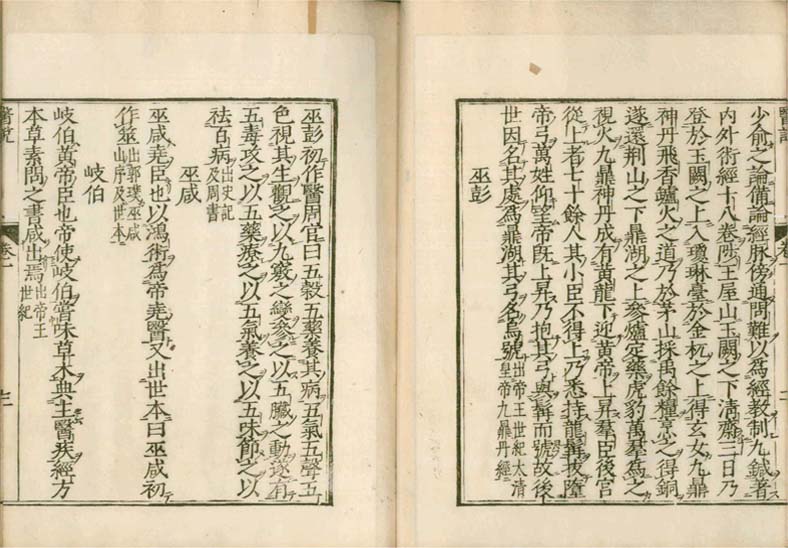 醫說
卷一
少俞之論備論經脉傍通問難以爲經教制九鍼著
内外術經十八卷陟王屋山玉闕之下清齋三日乃
登於玉闕之上入瓊琳臺於金杌之上得玄女九鼎
神丹飛香鑪火之道乃於茅山採禹餘糧烹之得銅
遂還荆山之下鼎湖之上參爐定藥虎豹萬羣爲之
視火九鼎神丹成有黄龍下迎黄帝上昇羣臣後宮
從上者七十餘人其小臣不得上乃悉持龍髯拔墮
帝弓萬姓仰望帝旣上昇乃抱其弓與髯而號故後
世因名其處爲鼎湖其弓名烏號出帝王世紀太清皇帝九鼎丹經
巫彭
巫彭初作醫周官曰五穀五藥養其病五氣五聲五
色視其生觀之以九竅之變參之以五臟之動遂有
五毒攻之以五藥療之以五氣養之以五味節之以
祛百病出史記及周書
巫咸
巫咸堯臣也以鴻術爲帝堯醫又出世本曰巫咸初
作筮出郭璞巫咸山序及世本
岐伯
岐伯黄帝臣也帝使岐伯嘗味草木典主醫疾經方
本草素問之書咸出焉出帝王世紀
醫說
卷一